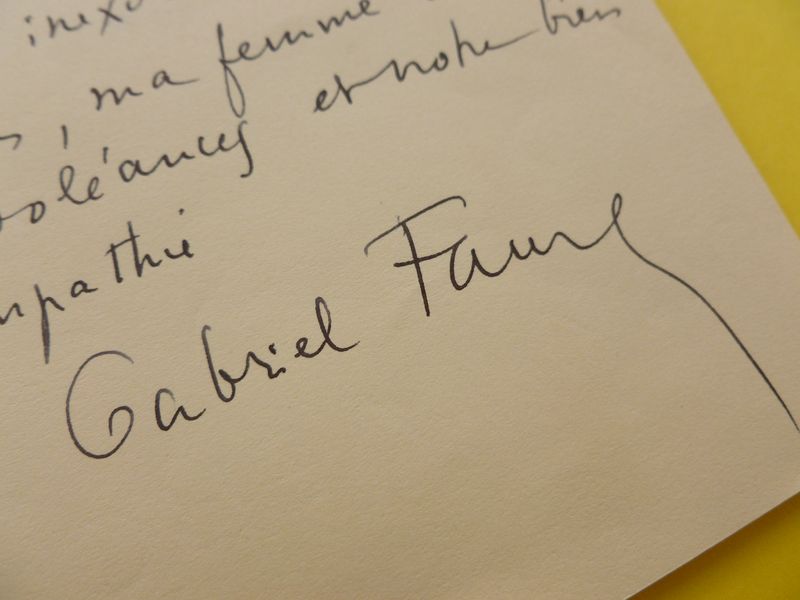 , ma femme
doléances et notre bien
mpathie
Gabriel Faure